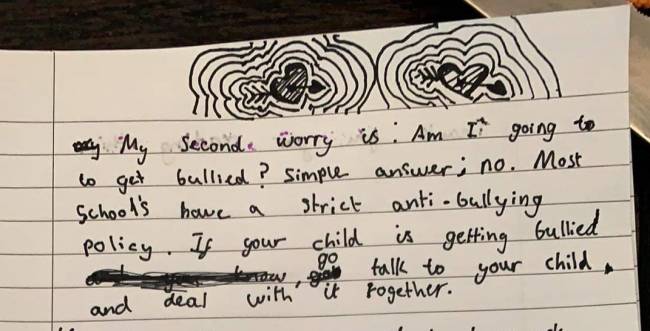 My second worry is : Am I going to
to get bullied? Simple answer; no. Most
School's have a strict anti-bullying
policy. If your child is getting bullied
, go talk to your child,
and deal with it together.